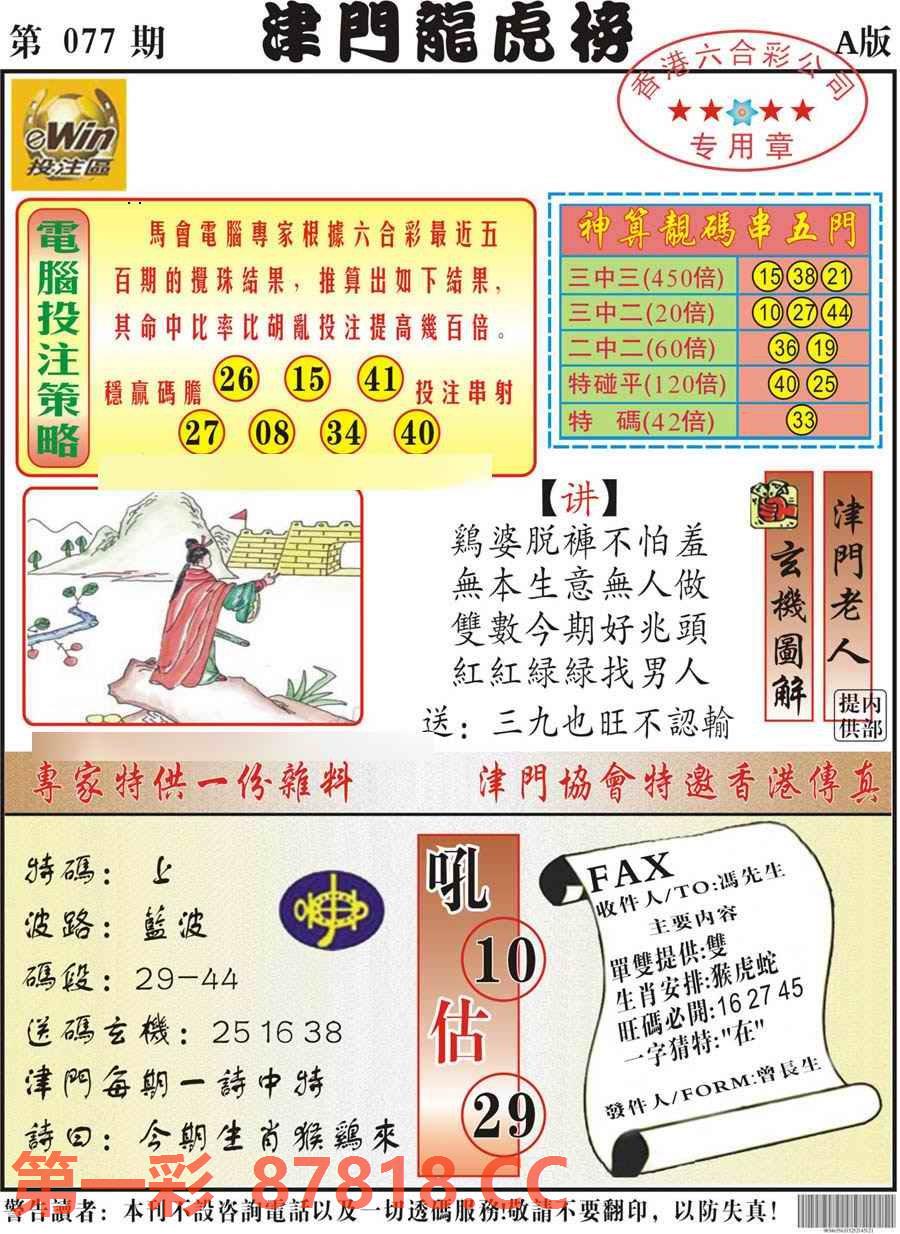 第 077 期
津門龍虎榜
A版
香港六合彩公司
专用章
eWin
投注區
電腦投注策略
馬會電腦專家根據六合彩最近五
百期的攪珠結果，推算出如下結果，
其命中比率比胡亂投注提高幾百倍。
穩贏碼膽 26 15 41 投注串射
27 08 34 40
神算靚碼串五門
三中三(450倍) 15 38 21
三中二(20倍) 10 27 44
二中二(60倍) 36 19
特碰平(120倍) 40 25
特 碼(42倍) 33
【讲】
鷄婆脱褲不怕羞
無本生意無人做
雙數今期好兆頭
紅紅緑緑找男人
送：三九也旺不認輸
玄機圖解
津門老人
内部提供
專家特供一份雜料
津門協會特邀香港傳真
特碼：上
波路：藍波
碼段：29-44
送碼玄機：25 16 38
津門每期一詩中特
詩曰：今期生肖猴鷄來
吼
10
估
29
FAX
收件人/TO:馮先生
主要内容
單雙提供:雙
生肖安排:猴虎蛇
旺碼必開:16 27 45
一字猜特:"在"
發件人/FORM:曾長生
第一彩 87818.CC
警告讀者：本刊不設咨詢電話以及一切透碼服務!敬請不要翻印，以防失真!